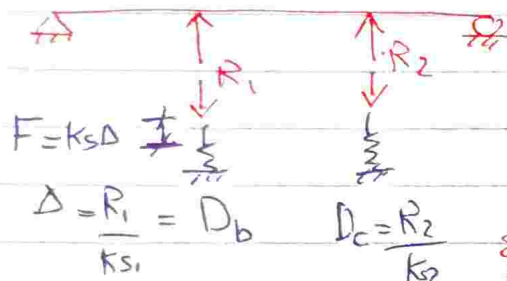 R₁
R₂
F=KsΔ
Δ = R₁/Ks₁ = D_b
D_c = R₂/Ks₂